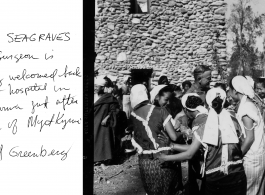 SEAGRAVES
Surgeon is
welcomed back
hospital in
just after
of Myitkyina
Greenberg